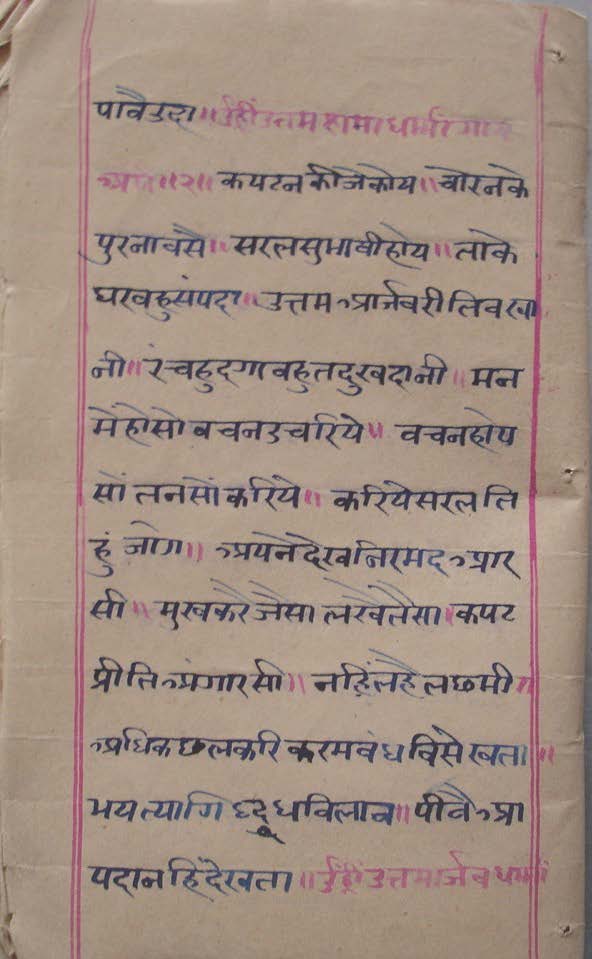 पावैउदा॥ उँह्रीं उत्तमक्षमाधर्मांगाय
॥२॥ कपटनकीजैकोय॥ चोरनके
पुरनावसै॥ सरलसुभावीहोय॥ ताके
घरवहुसंपदा॥ उत्तमआर्जवरीतिवखा
नी॥ रंचहुदगावहुतदुखदानी॥ मन
मेंहोसोवचनउचरिये॥ वचनहोय
सोंतनसोंकरिये॥ करियेसरलति
हुंजोग॥ अपनेदेखनिरमदआर
सी॥ मुखकरैजैसालखैतैसा॥ कपट
प्रीतिअंगारसी॥ नहिंलहैलछमी
अधिकछलकरिकरमवंधविसेखता॥
भयत्यागिदूधविलाव॥ पीवैआ
पदानहिंदेखता॥ उँह्रीं उत्तमार्जवधर्मां